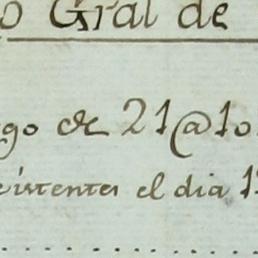 o Gral de
go de 21@10
eistentes el dia 1